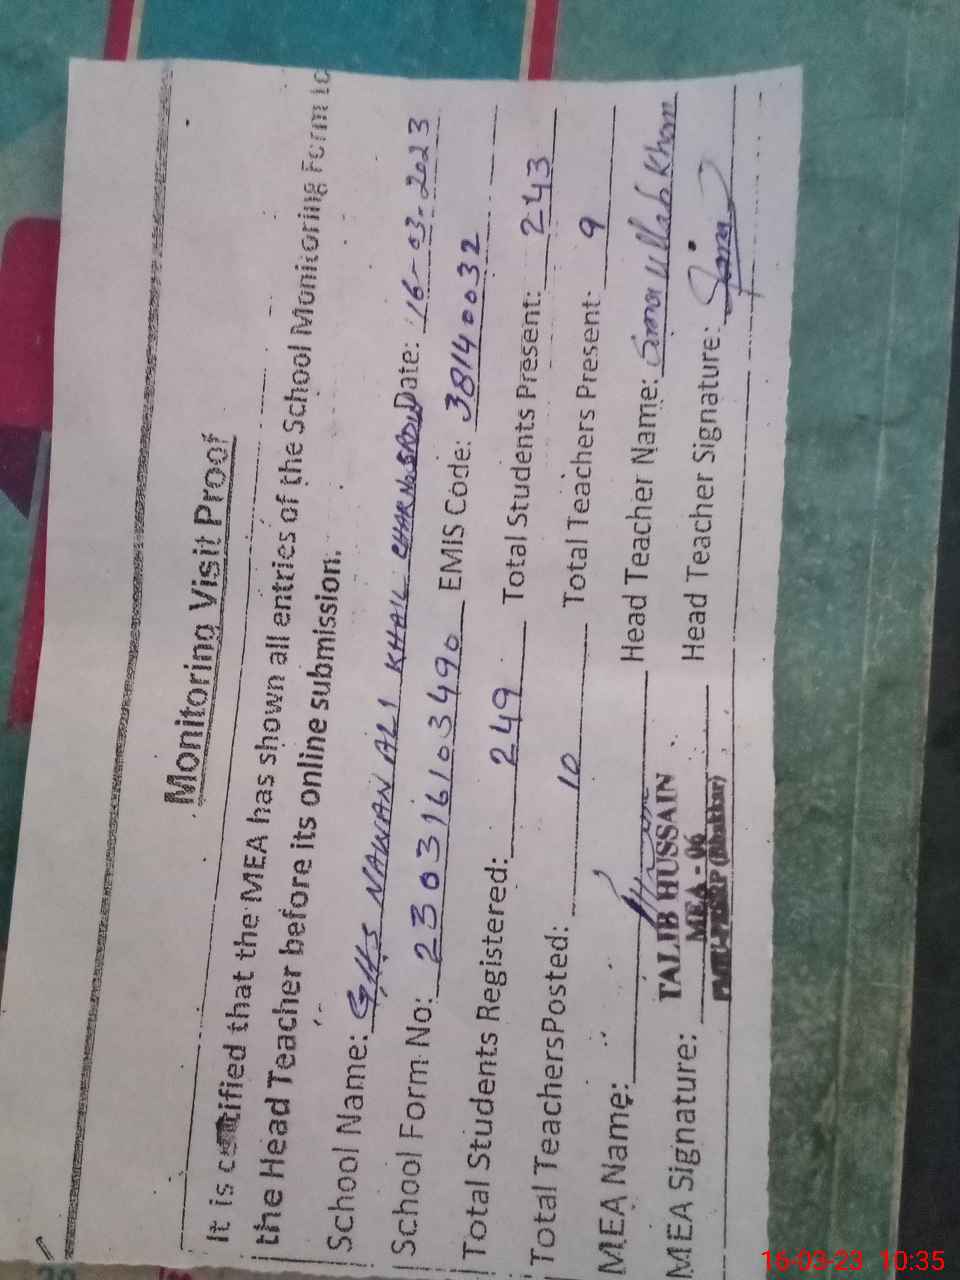 Monitoring Visit Proof
It is certified that the MEA has shown all entries of the School Monitoring Form to
the Head Teacher before its online submission.
School Name: GHS NAWAN ALI KHAIL Date: 16-03-2023
School Form No: 230316103490 EMIS Code: 38140032
Total Students Registered: 249 Total Students Present: 243
Total TeachersPosted: 10 Total Teachers Present: 9
MEA Name: Head Teacher Name: ullah Khan
TALIB HUSSAIN
MEA - 06
(Bhakkar)
MEA Signature: Head Teacher Signature:
16-03-23 10:35